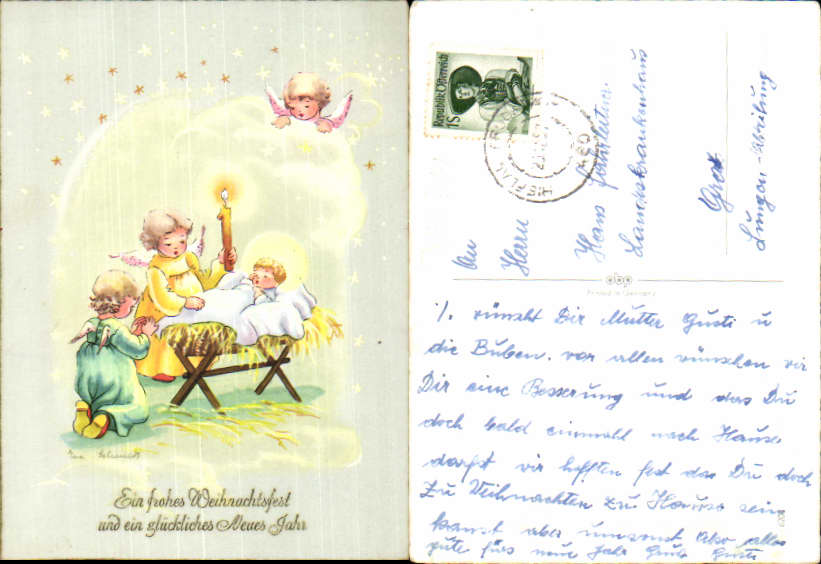 Ein frohes Weihnachtsfest
und ein glückliches Neues Jahr
Republik Österreich
1S
HIEFLAU
An
Herrn
Hans
Landeskrankenhaus
Graz
Lungen-Abteilung
Printed in Germany
/. wünscht Dir Mutter Gusti u
die Buben. vor allen wünschen wir
Dir eine Besserung und das Du
doch bald einmahl nach Hause
darfst wir hofften fest das Du doch
zu Weihnachten zu Hause sein
kanst aber umsonst Also alles
gute fürs neue Jahr Gusti